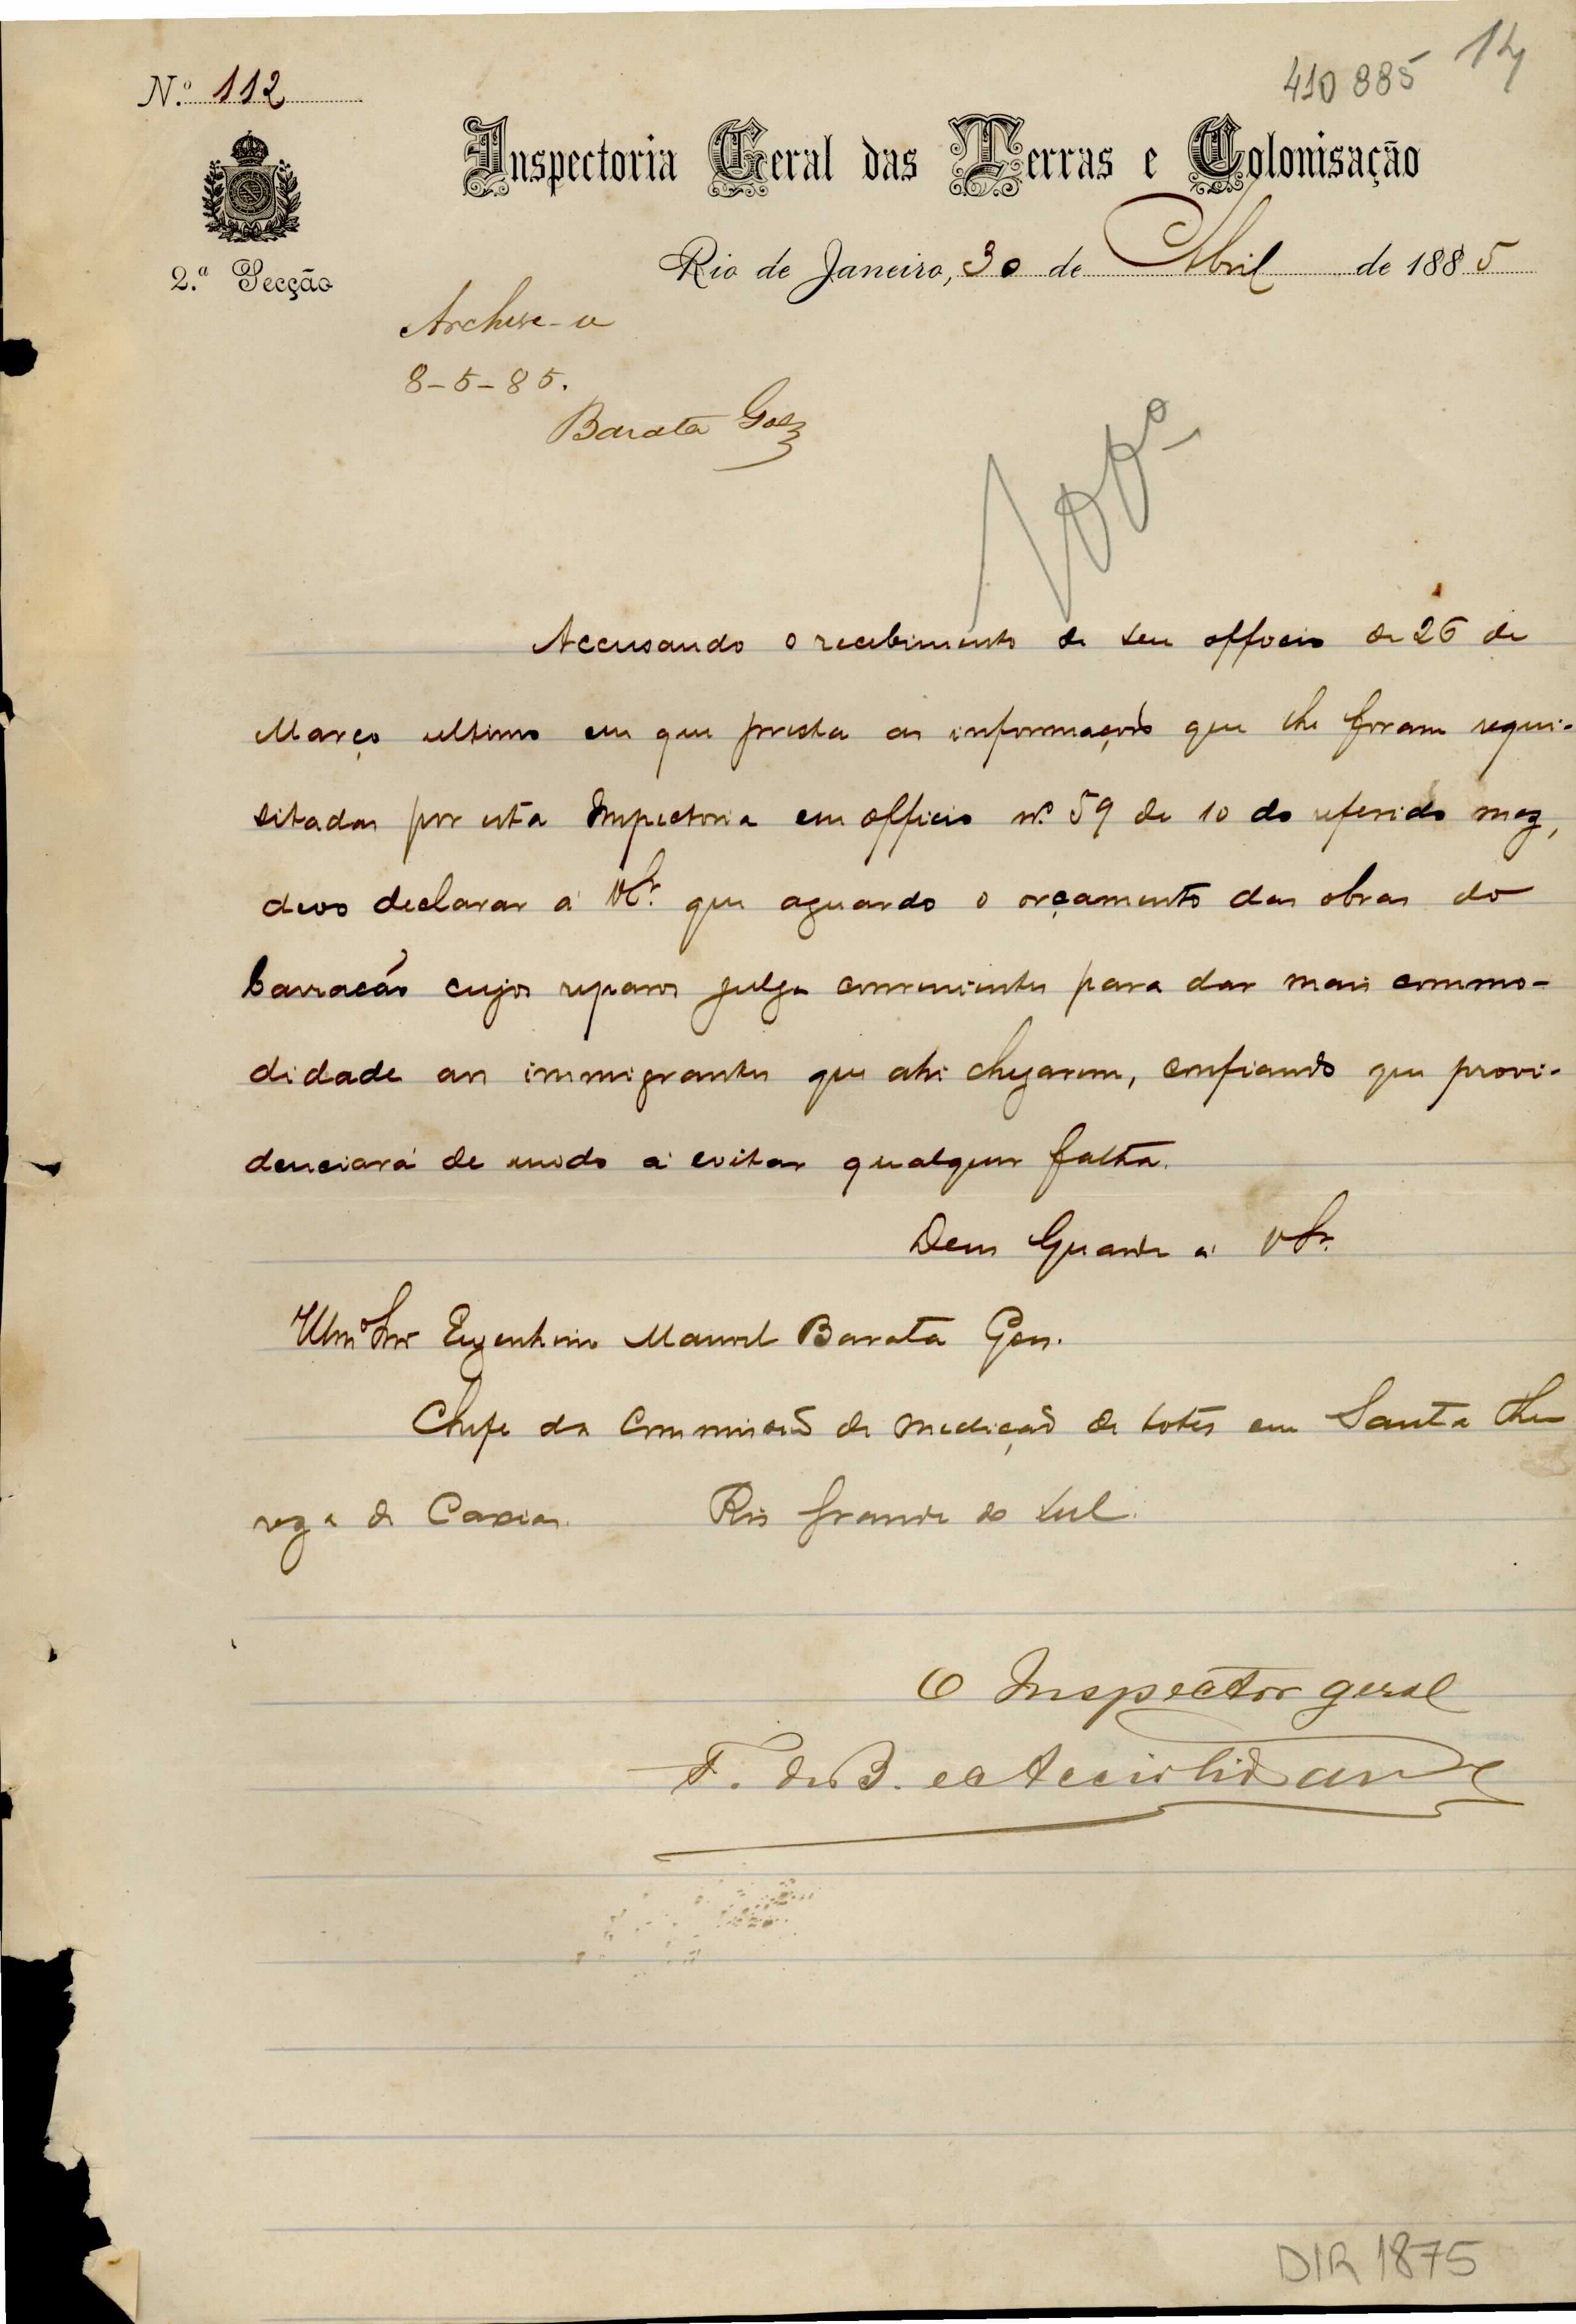 410885 14
N.º 112
Inspectoria Geral das Terras e Colonisação
2.ª Secção
Rio de Janeiro, 30 de Abril de 1885
Archive-se
8-5-85.
Barata Goes
Accusando o recebimento de seu officio de 26 de
Março ultimo em que presta as informações que lhe foram requi-
sitadas por esta Inspectoria em officio nº 59 de 10 do referido mez,
devo declarar a VSª. que aguardo o orçamento das obras do
barracão cujos reparos julga convenientes para dar mais commo-
didade aos immigrantes que ahi chegarem, confiando que provi-
denciará de modo a evitar qualquer falta.
Deus Guarde a VSª.
Illmº Snr Engenheiro Manoel Barata Goes.
Chefe da Commissão de medição de lotes em Santa The
reza de Caxias. Rio Grande do Sul.
O Inspector geral
F. de B. e Accioli de
DIR 1875